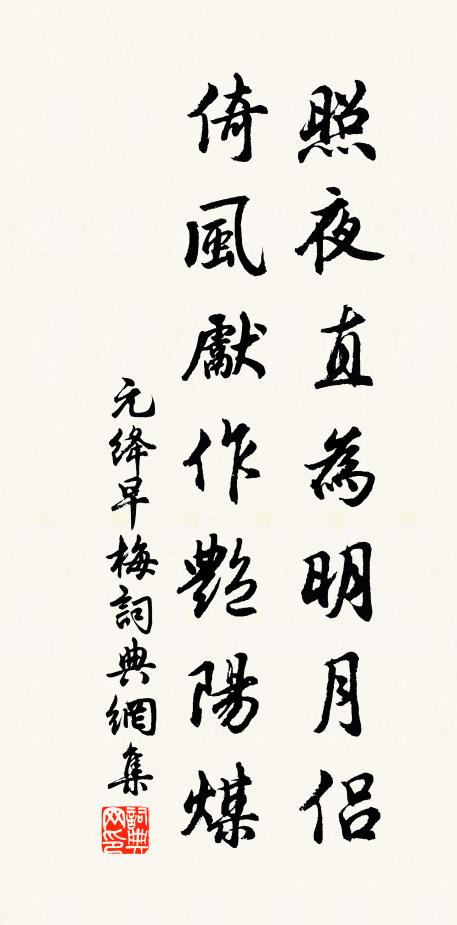 照夜直為明月侶
倚風獻作艷陽煤
元絳早梅詞典網集
詞典
网印